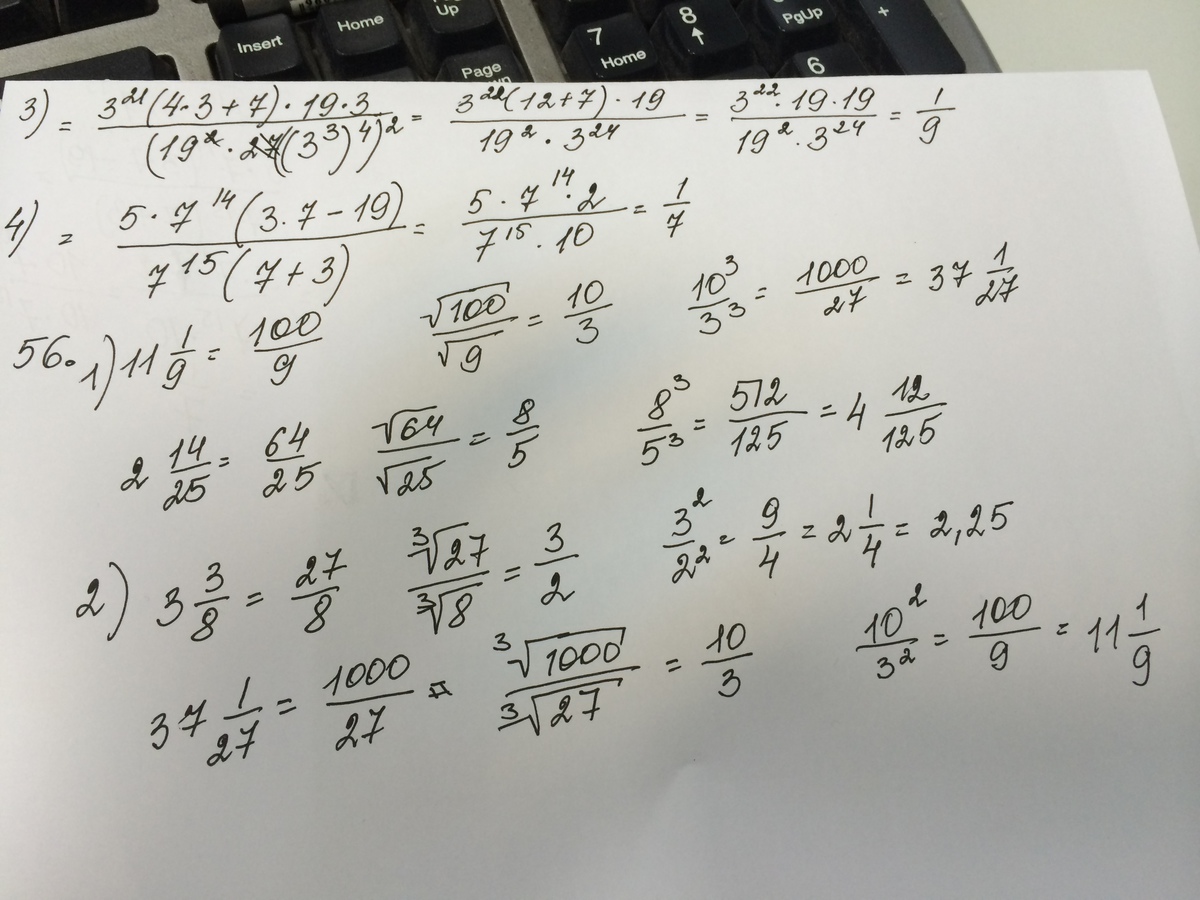 Insert
Home
Up
Page
7
Home
8
PgUp
6
+
3) = \frac{3^{21}(4·3+7)·19·3}{(19^2·((3^3)^4)^2} = \frac{3^{22}(12+7)·19}{19^2·3^{24}} = \frac{3^{22}·19·19}{19^2·3^{24}} = \frac{1}{9}
4) = \frac{5·7^{14}(3.7-19)}{7^{15}(7+3)} = \frac{5·7^{14}·2}{7^{15}·10} = \frac{1}{7}
56. 1) 11\frac{1}{9} = \frac{100}{9} \frac{\sqrt{100}}{\sqrt{9}} = \frac{10}{3} \frac{10^3}{3^3} = \frac{1000}{27} = 37\frac{1}{27}
2\frac{14}{25} = \frac{64}{25} \frac{\sqrt{64}}{\sqrt{25}} = \frac{8}{5} \frac{8^3}{5^3} = \frac{512}{125} = 4\frac{12}{125}
2) 3\frac{3}{8} = \frac{27}{8} \frac{\sqrt[3]{27}}{\sqrt[3]{8}} = \frac{3}{2} \frac{3^2}{2^2} = \frac{9}{4} = 2\frac{1}{4} = 2,25
37\frac{1}{27} = \frac{1000}{27} = \frac{\sqrt[3]{1000}}{\sqrt[3]{27}} = \frac{10}{3} \frac{10^2}{3^2} = \frac{100}{9} = 11\frac{1}{9}